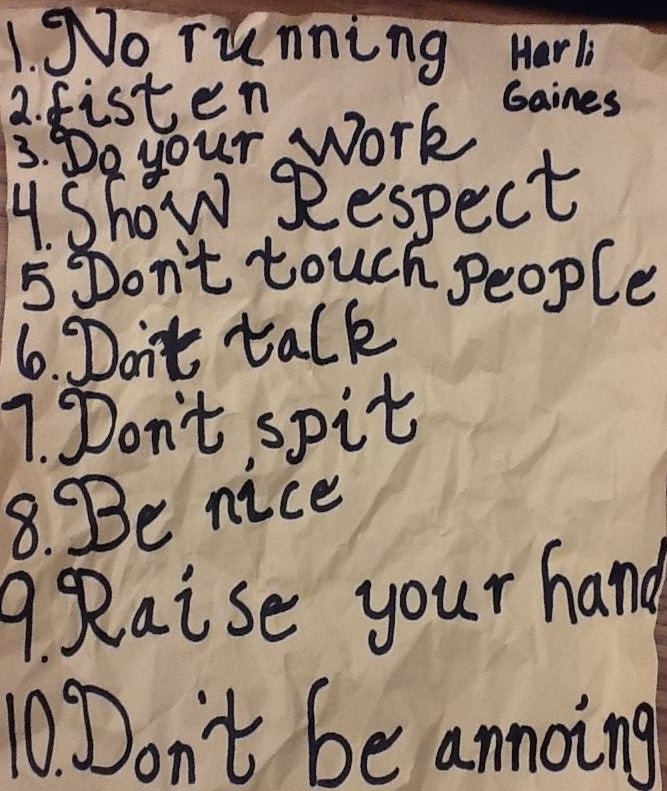 1. No running
Harli
Gaines
2. Listen
3. Do your work
4. Show Respect
5 Don't touch people
6. Don't talk
7. Don't spit
8. Be nice
9. Raise your hand
10. Don't be annoing